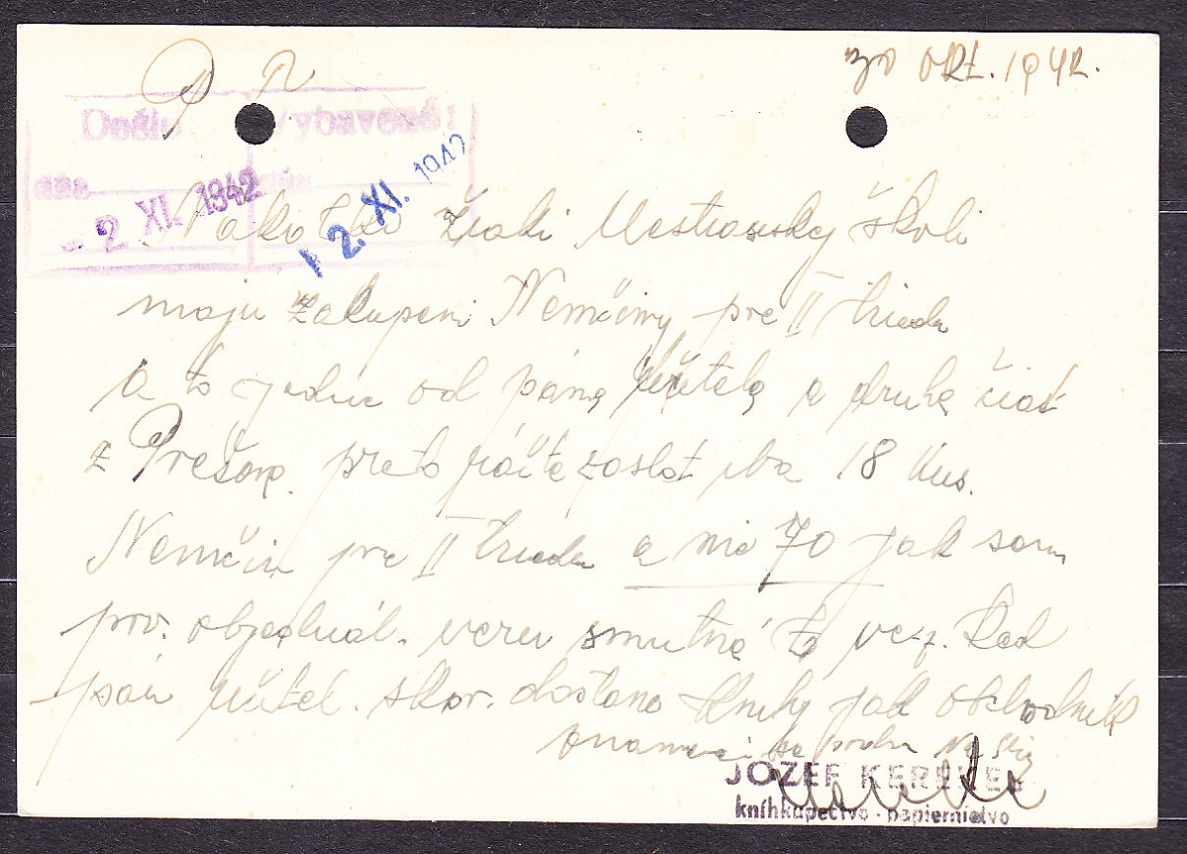 P N
30 OKT. 1942.
Došlo Vybavené:
dňa dňa
- 2 XI. 1942
12. XI. 1942
Nakoľko žiaki Mestianskej školi
maju zakupeni Nemčiny pre II trieda
a to jednu od pána učitela a druhá časť
z Prešova. preto ráčte zaslať iba 18 kus.
Nemčin pre II trieda a nie 70 jak som
prv. objednál. veru smutná to vec. Ked
pán učitel. skor. dostane knihy jak obchodnik
na
JOZEF KEREKEŠ
kníhkupectvo - papierníctvo